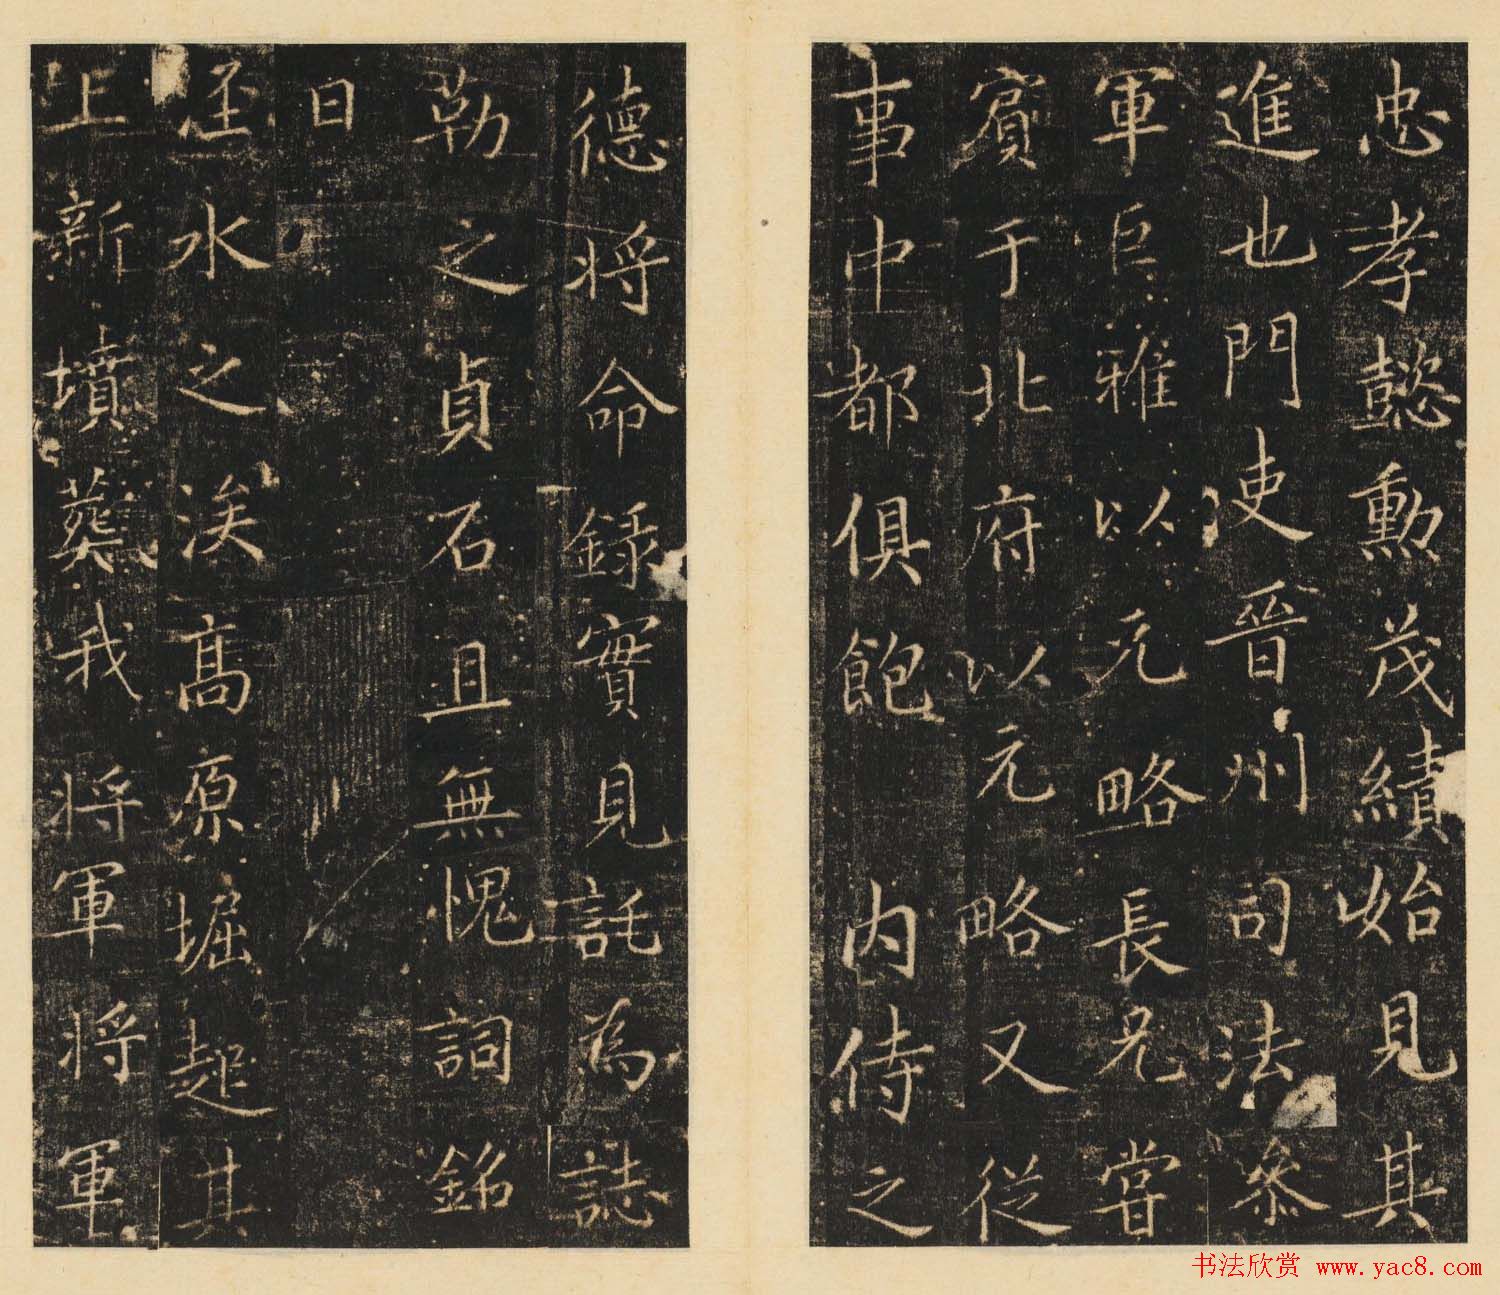 忠孝懿勳茂績始見其
進也門吏晉州司法參
軍巨雅以元略長兄嘗
賓于北府以元略又從
事中都俱飽內侍之
德將命錄實見託為誌
勒之貞石且無愧詞銘
曰
丕水之涘高原堀起其
上新墳葬我將軍將軍
书法欣赏 www.yac8.com